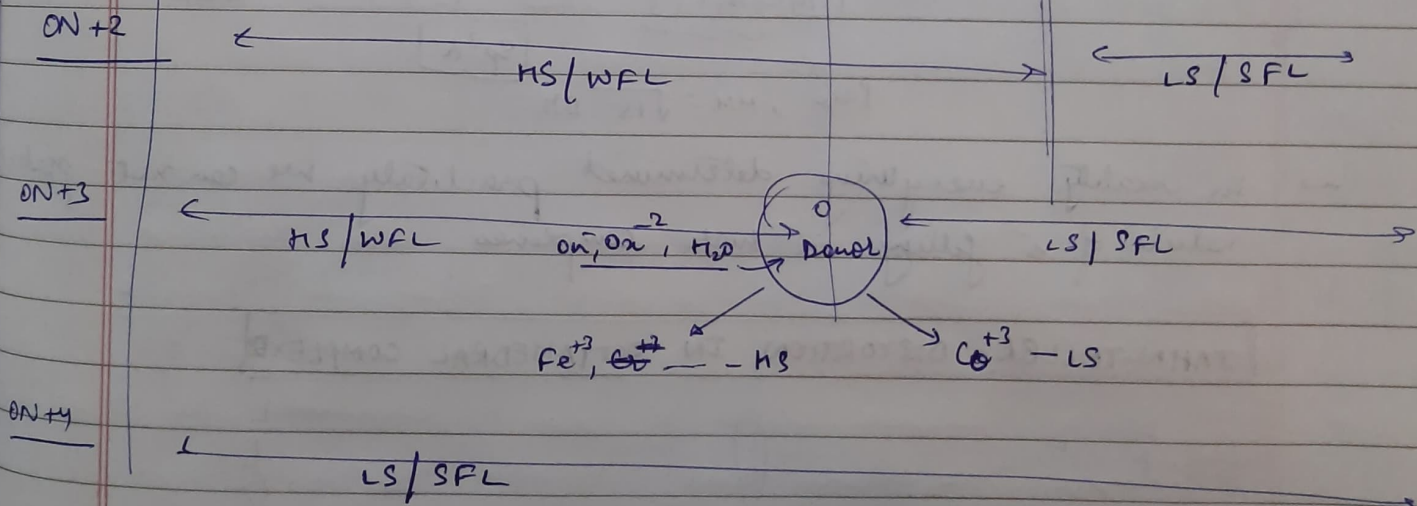 ON +2
HS/WFL
LS/SFL
ON+3
HS/WFL
Ox⁻², H₂O
O
Donor
LS/SFL
Fe⁺³, — - HS
Co⁺³ – LS
ON+4
LS/SFL